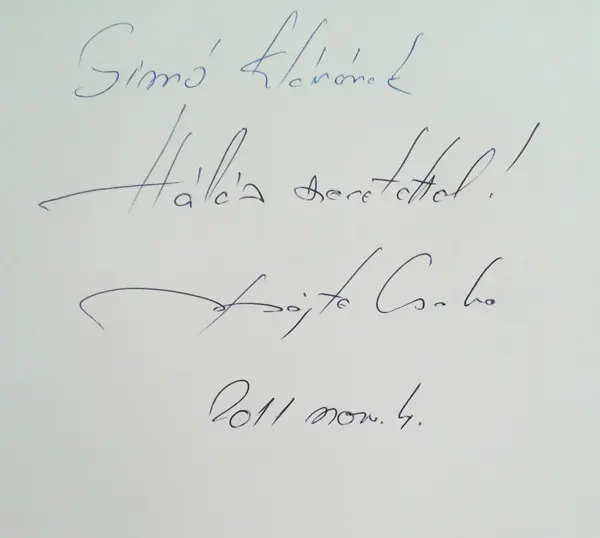 Simó Klárának
Hálás szeretettel!
Böjte Csaba
2011 nov. 4.